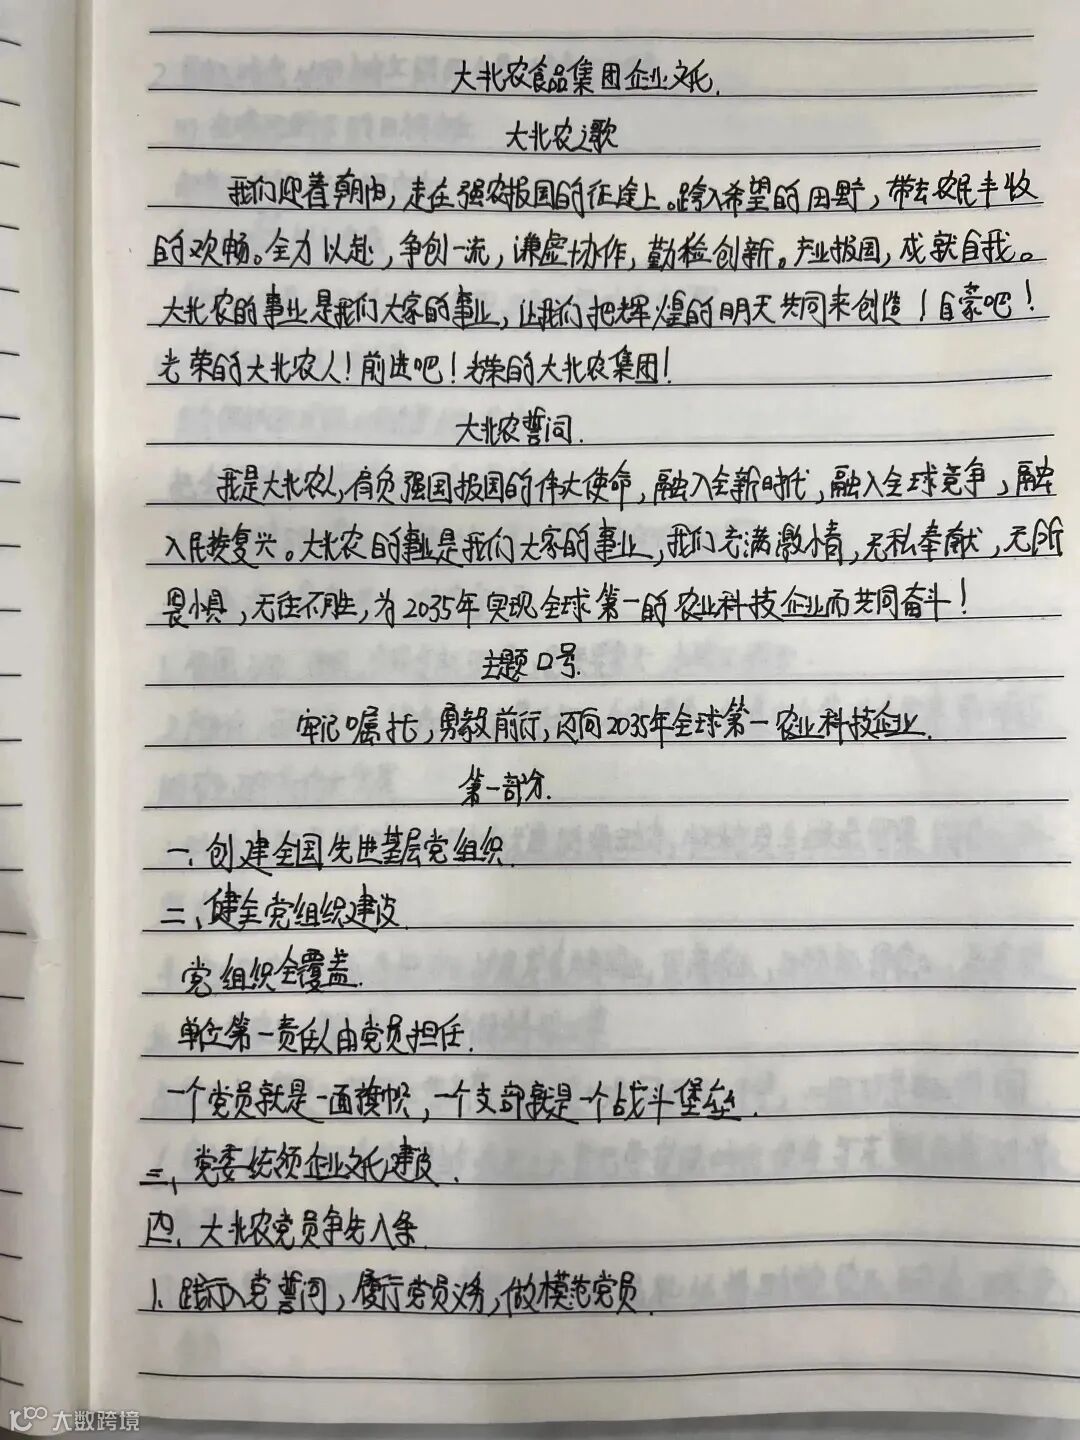 大北农食品集团企业文化.
大北农之歌
我们迎着朝阳,走在强农报国的征途上。踏入希望的田野,带去农民丰收
的欢畅。全力以赴,争创一流,谦虚协作,勤检创新。产业报国,成就自我。
大北农的事业是我们大家的事业,让我们把辉煌的明天共同来创造!自豪吧!
光荣的大北农人!前进吧!光荣的大北农集团!
大北农誓词.
我是大北农人,肩负强国报国的伟大使命,融入全新时代,融入全球竞争,融
入民族复兴。大北农的事业是我们大家的事业,我们充满激情,无私奉献,无所
畏惧,无往不胜,为2035年实现全球第一的农业科技企业而共同奋斗!
主题口号.
牢记嘱托,勇毅前行,迈向2035年全球第一农业科技企业.
第一部分.
一、创建全国先进基层党组织.
二、健全党组织建设.
党组织全覆盖.
单位第一责任人由党员担任.
一个党员就是一面旗帜,一个支部就是一个战斗堡垒.
三、党委统领企业文化建设.
四、大北农党员争先八条.
1、践行入党誓词,履行党员义务,做模范党员.
大数跨境